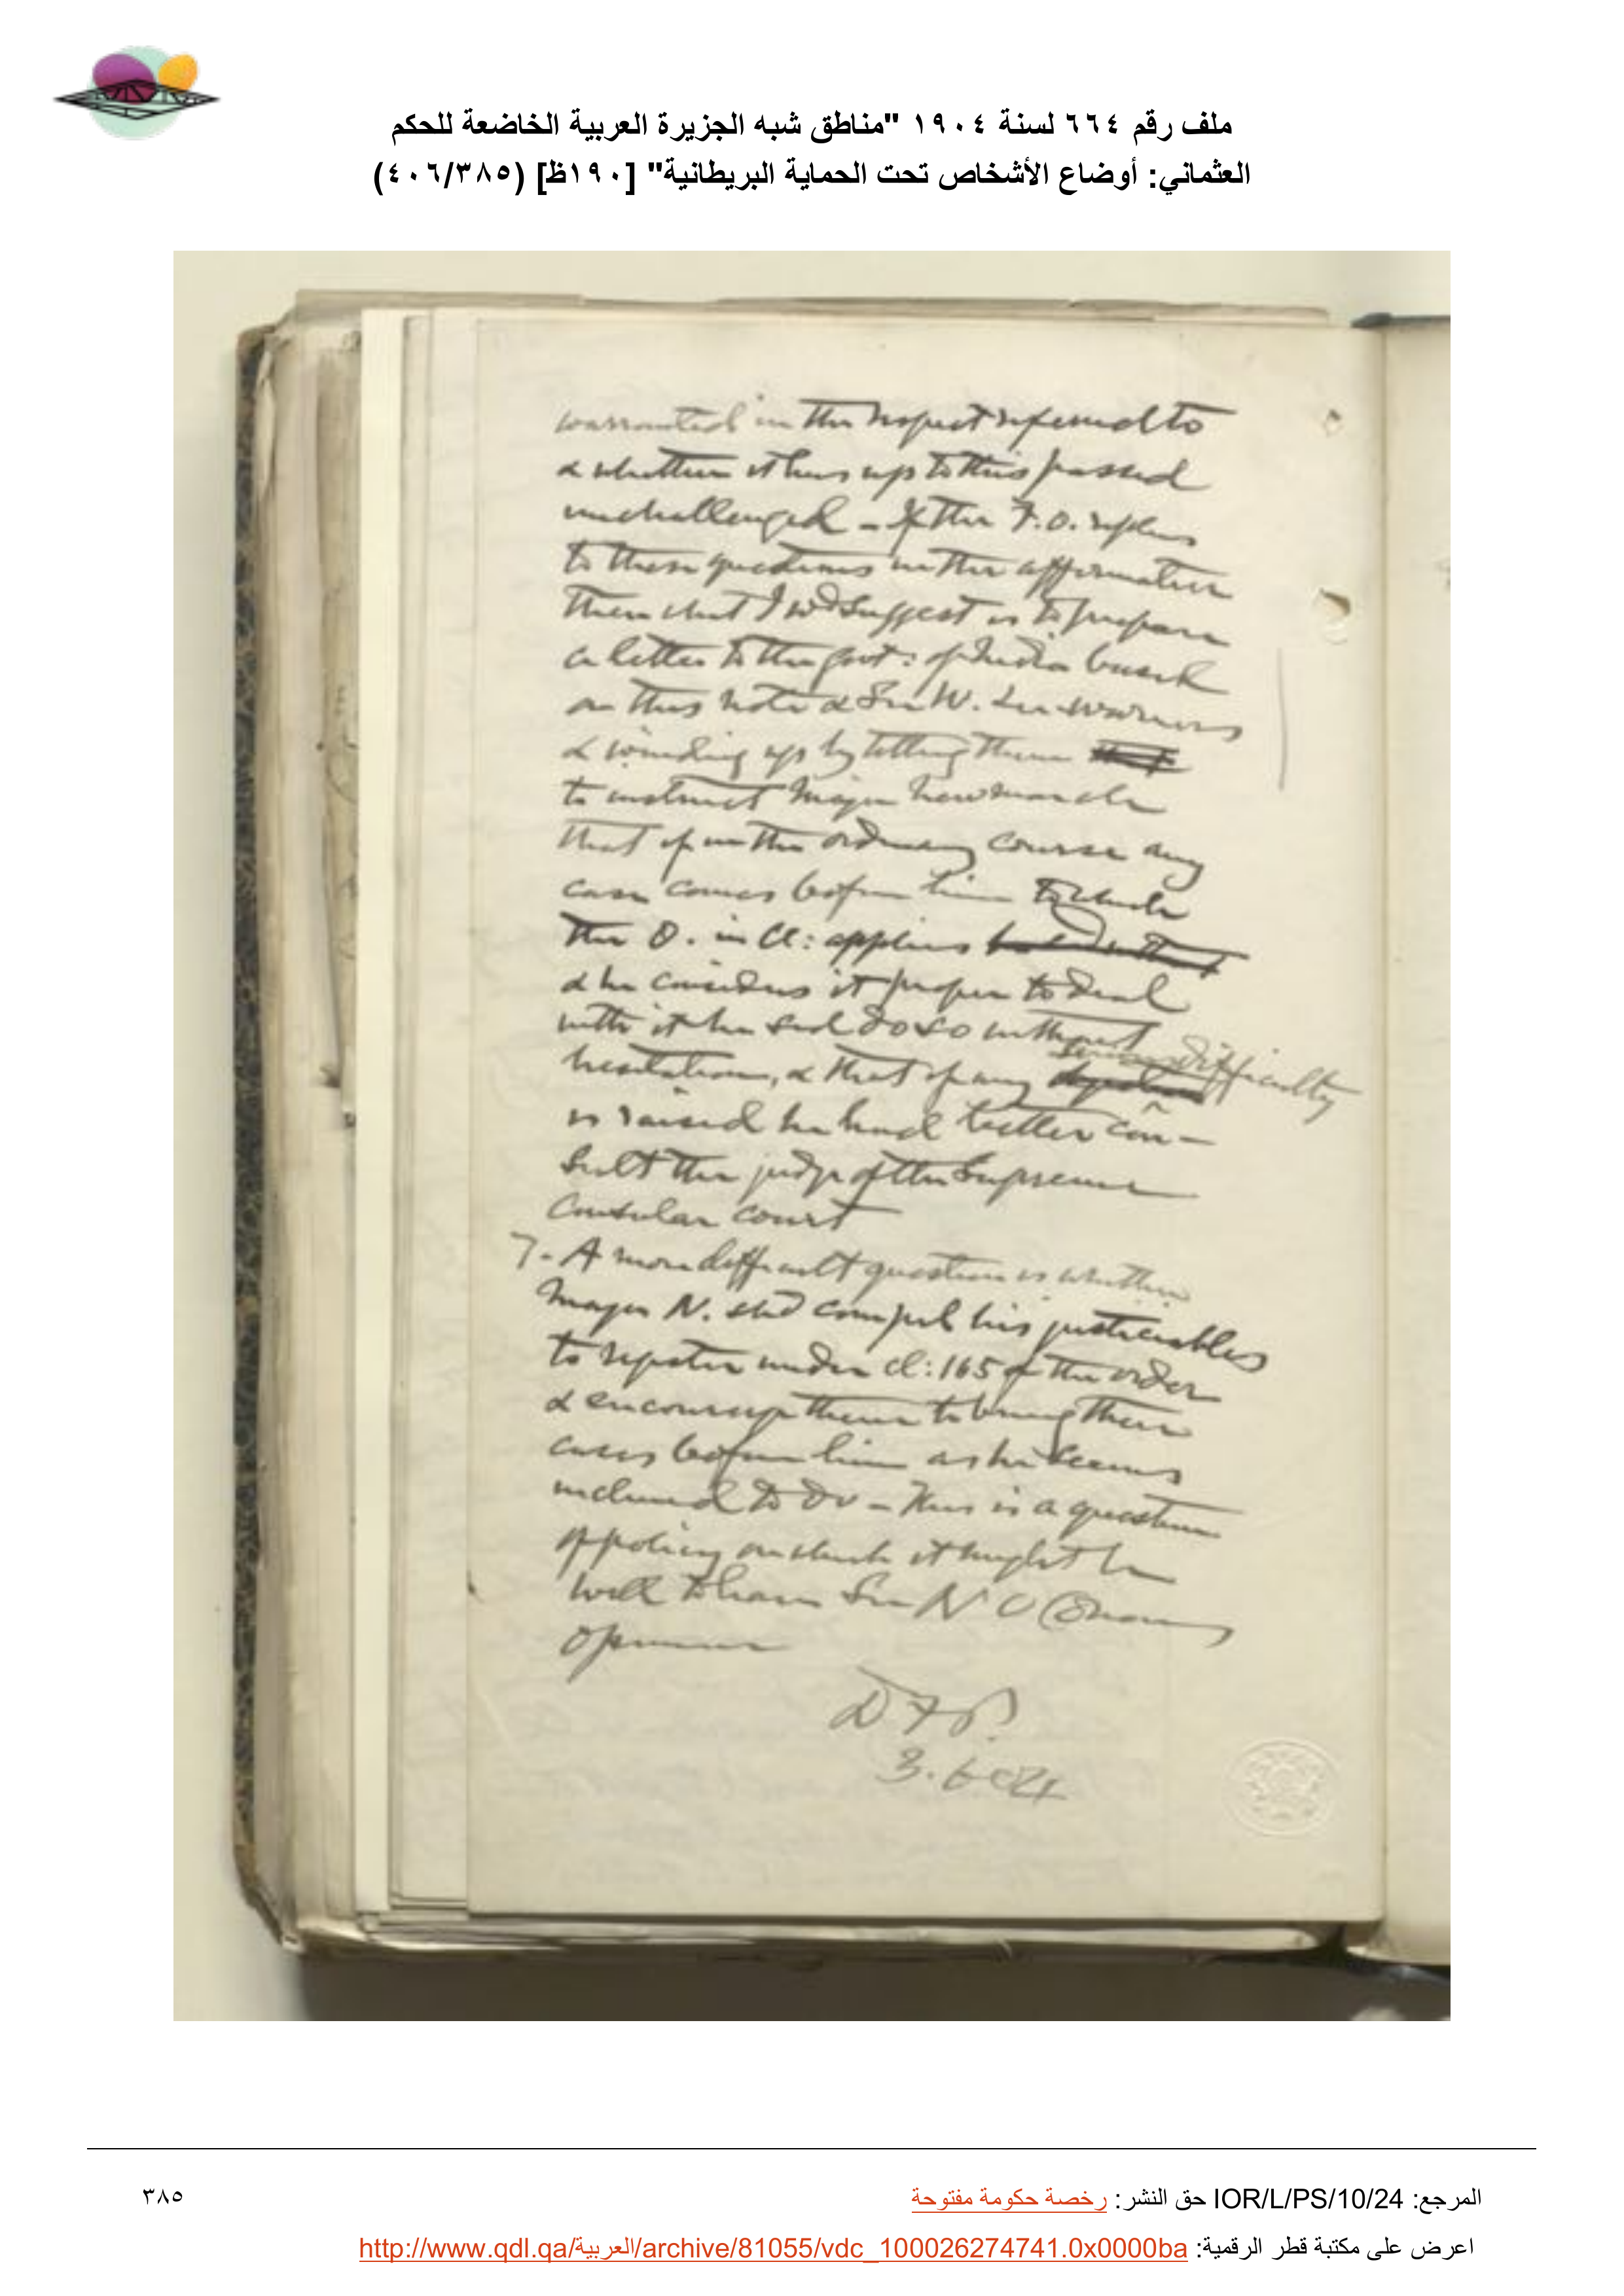 ملف رقم ٦٦٤ لسنة ١٩٠٤ "مناطق شبه الجزيرة العربية الخاضعة للحكم
العثماني: أوضاع الأشخاص تحت الحماية البريطانية" [١٩٠ظ] (٤٠٦/٣٨٥)
warranted in the respect referred to
& whether it has up to this passed
unchallenged – If the F.O. replies
to these questions in the affirmative
then what I wd suggest is to prepare
a letter to the Govt: of India based
on this note & Sir W. Lee-Warners
& winding up by telling them
to instruct Major Newmarch
that if in the ordinary course any
case comes before him to which
the O. in Cl: applies
& he considers it proper to deal
with it he shd do so without
hesitation, & that if any serious difficulty
is raised he had better con-
sult the judge of the Supreme
Consular court
7. A more difficult question is whether
Major N. shd compel his justiciables
to register under cl: 165 of the order
& encourage them to bring their
cases before him as he seems
inclined to do – This is a question
of policy on which it might be
well to have Sir N O'Conors
opinion
3.6.04
المرجع: IOR/L/PS/10/24 حق النشر: رخصة حكومة مفتوحة
٣٨٥
اعرض على مكتبة قطر الرقمية: http://www.qdl.qa/العربية/archive/81055/vdc_100026274741.0x0000ba